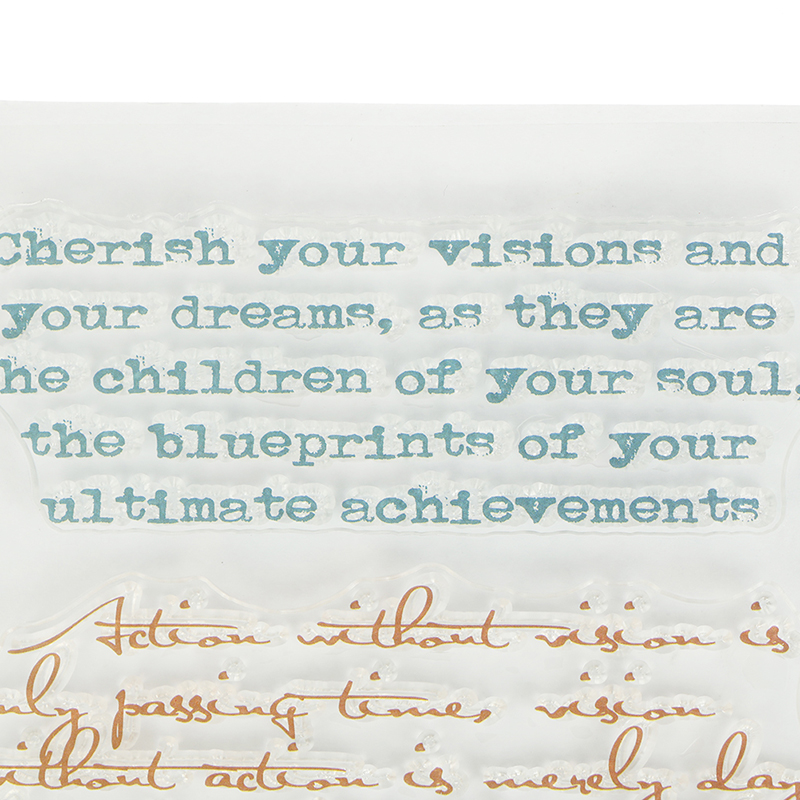 Cherish your visions and
your dreams, as they are
he children of your soul,
the blueprints of your
ultimate achievements
Action without vision is
nly passing time, vision
ithout action is merely day